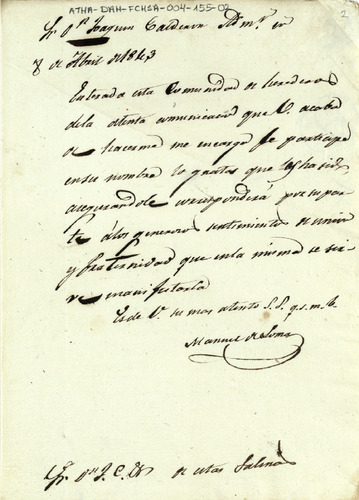 ATHA-DAH-FCHSA-004-155-02
2
Sr. Dn. Joaquin Calderon Adm.r en
8 de Abril de 1843
Enterada esta Comunidad de herederos
de la atenta comunicacion que V. acaba
de hacerme me encarga le participe
en su nombre lo gratas que les ha sido
asegurandole corresponderá por su par
te á los generosos sentimientos de union
y fraternidad que en la misma se sir
ve manifestarla
Es de V. su mas atento S.S. q.s.m.b.
Manuel de Loma
Sr. Dn. J. C. de estas Salinas